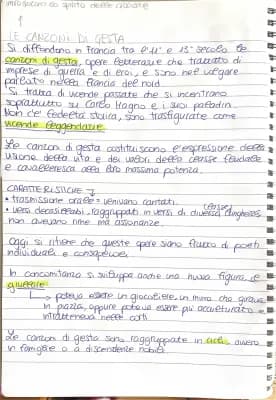 lo spirito delle crociate
1
LE CANZONI DI GESTA
Si diffondono in Francia tra l'11° e 13° secolo le
canzoni di gesta, opere letterarie che trattato di
imprese di guerra e di eroi, e sono nel volgare
parlato nella Francia del nord.
Si tratta di vicende passate che si incentrano
soprattutto su Carlo Magno e i suoi paladini.
Non c'è fedeltà storica, sono trasfigurate come
vicende leggendarie.
Le canzoni di gesta costituiscono l'espressione della
visione della vita e dei valori della classe feudale
e cavalleresca alla loro massima potenza.
CARATTERISTICHE
• trasmissione orale: venivano cantati.
• versi decasillabi, raggruppati in versi di diversa lunghezza
(lasse)
non avevano rime ma assonanze.
Oggi si ritiene che queste opere siano frutto di poeti
individuali e consapevoli.
In concomitanza si sviluppa anche una nuova figura, il
giullare
poteva essere un giocoliere, un mimo che girava
in piazza, oppure poteva essere più acculturato e
intratteneva nelle corti
Le canzoni di gesta sono raggruppate in cicli, ovvero
in famiglie o a discendenze nobili